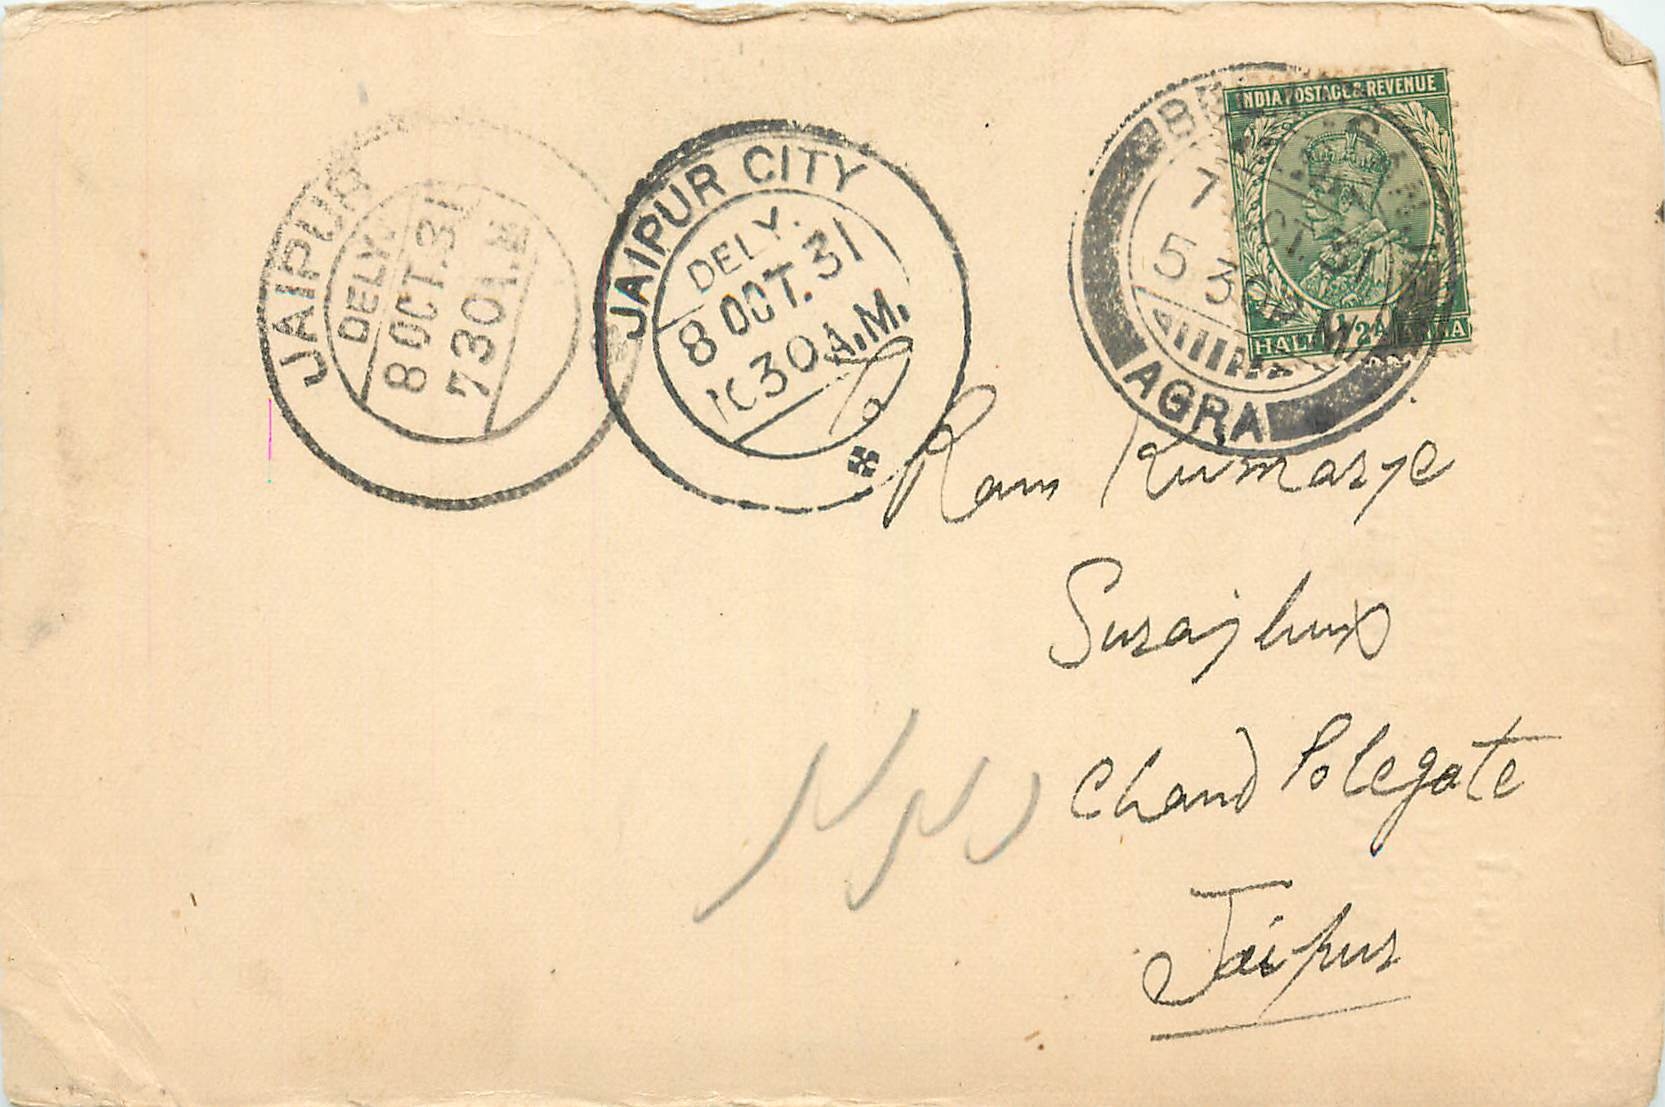 JAIPUR
DELY.
8 OCT. 31
7 30 A.M.
JAIPUR CITY
DELY.
8 OCT. 31
10 30 A.M.
INDIA POSTAGE & REVENUE
HALF 1/2 ANNA
7
OCT. 31
5 30 PM
AGRA
Ram Kumarje
Surajbux
Chand Polegate
Jaipur